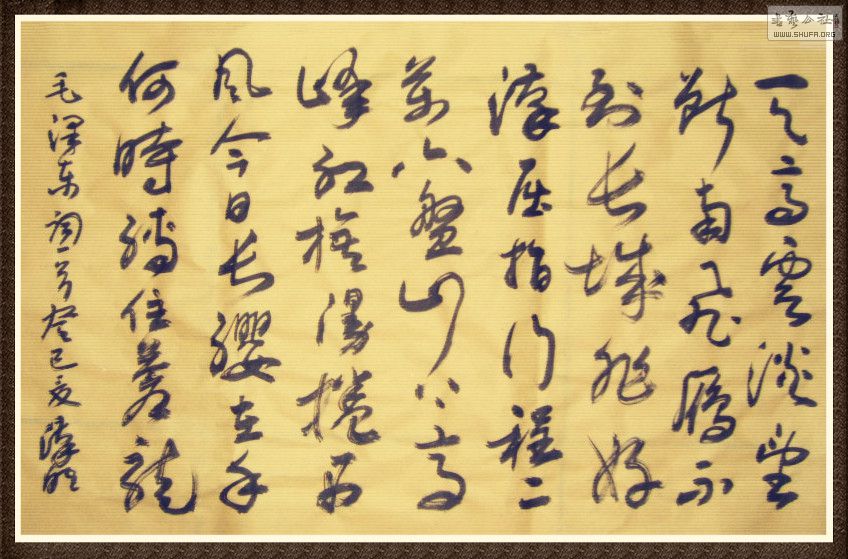 天高雲淡望
断南飛雁不
到长城非好
漢屈指行程二
萬六盤山上高
峰红旗漫捲西
风今日长缨在手
何時缚住蒼龍
毛泽东词一首癸巳夏
书艺公社
WWW.SHUFA.ORG